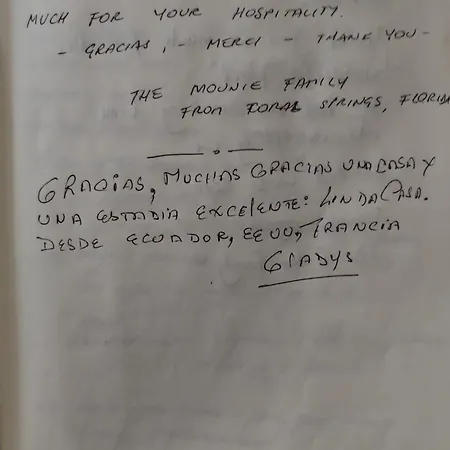 MUCH FOR YOUR HOSPITALITY.
- GRACIAS, - MERCI - THANK YOU -
THE MOUNIE FAMILY
FROM CORAL SPRINGS, FLORIDA
GRACIAS, MUCHAS GRACIAS UNA CASA Y
UNA ESTADIA EXCELENTE: LINDA CASA.
DESDE ECUADOR, EEUU, FRANCIA
GLADYS